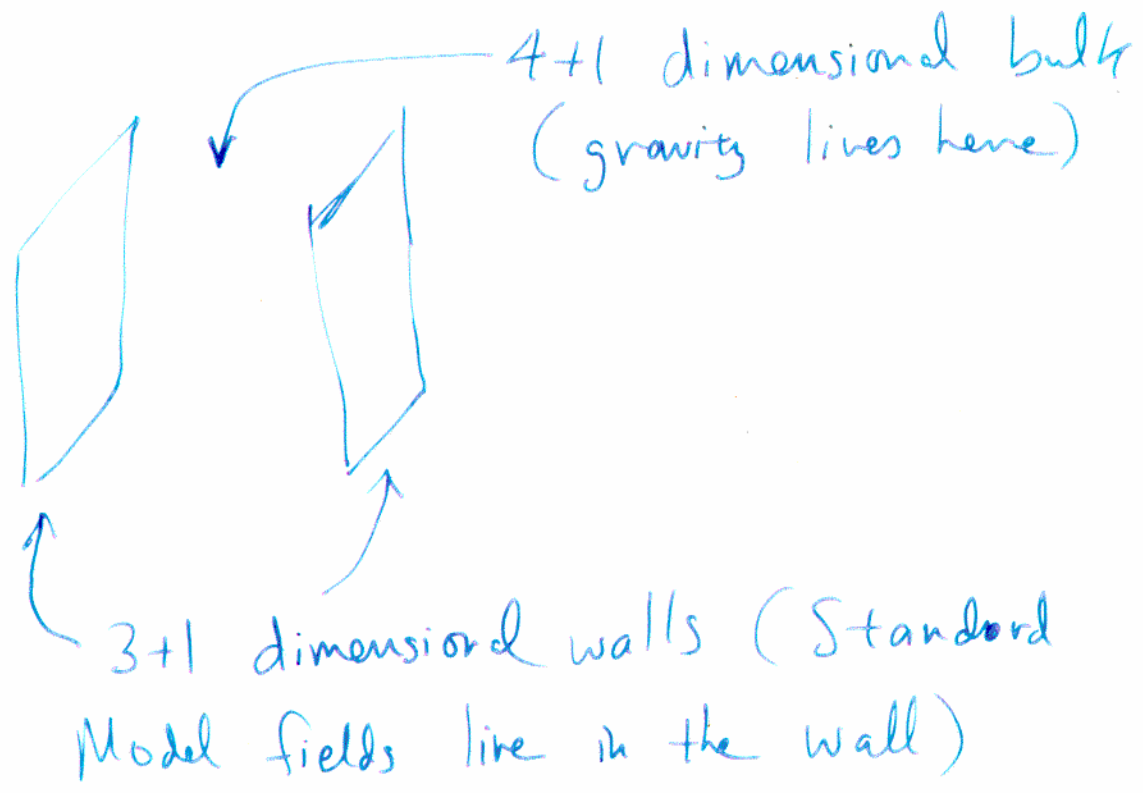 4+1 dimensional bulk
(gravity lives here)
3+1 dimensional walls (Standard
Model fields live in the wall)